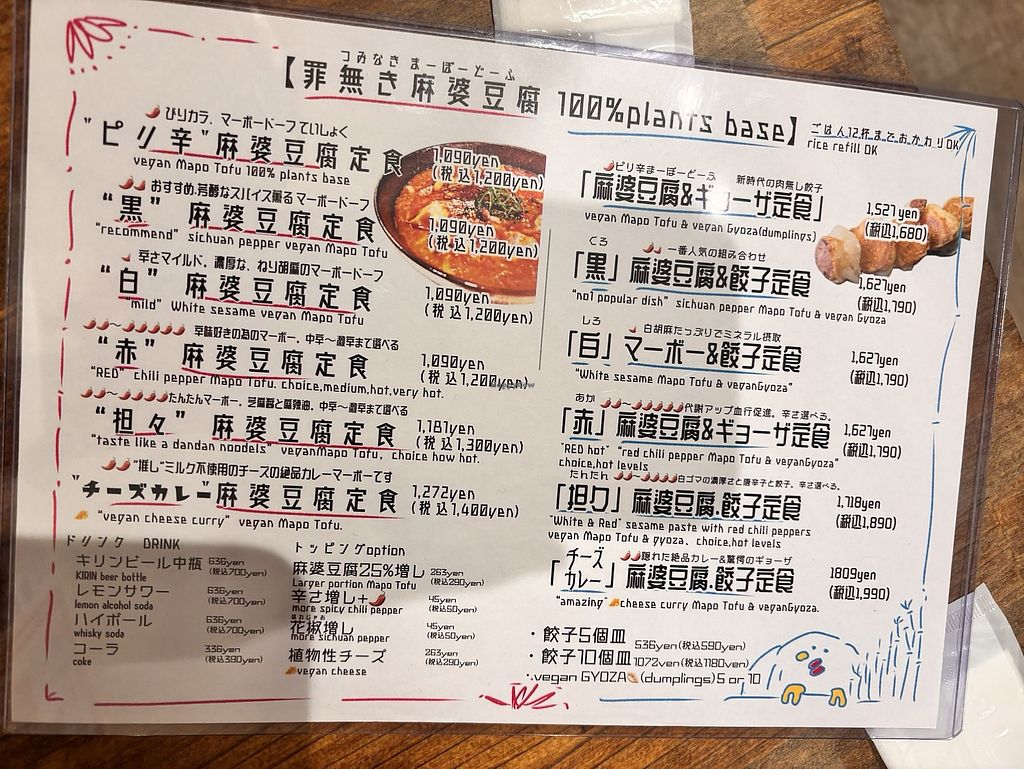 つみなき まーぼーどーふ
【罪無き麻婆豆腐 100%plants base】
ごはん12杯までおかわりOK
rice refill OK
ぴりカラ、マーボードーフていしょく
"ピリ辛"麻婆豆腐定食
1,090yen
(税込1,200yen)
vegan Mapo Tofu 100% plants base
おすすめ,芳醇なスパイス薫るマーボードーフ
"黒" 麻婆豆腐定食
1,090yen
(税込1,200yen)
"recommend" sichuan pepper vegan Mapo Tofu
辛さマイルド、濃厚な、ねり胡麻のマーボードーフ
"白" 麻婆豆腐定食
1,090yen
(税込1,200yen)
"mild" White sesame vegan Mapo Tofu
辛味好きの為のマーボー、中辛〜激辛まで選べる
"赤" 麻婆豆腐定食
1,090yen
(税込1,200yen)
"RED" chili pepper Mapo Tofu. choice,medium,hot,very hot.
たんたんマーボー、芝麻醤と麻辣油、中辛〜激辛まで選べる
"担々" 麻婆豆腐定食
1,181yen
(税込1,300yen)
"taste like a dandan noodels" veganMapo Tofu, choice how hot.
"推し"ミルク不使用のチーズの絶品カレーマーボーです
"チーズカレー"麻婆豆腐定食
1,272yen
(税込1,400yen)
"vegan cheese curry" vegan Mapo Tofu.
ドリンク DRINK
キリンビール中瓶 636yen
(税込700yen)
KIRIN beer bottle
レモンサワー 636yen
(税込700yen)
lemon alcohol soda
ハイボール 636yen
(税込700yen)
whisky soda
コーラ 336yen
(税込390yen)
coke
トッピングoption
麻婆豆腐25%増し 263yen
(税込290yen)
Larger portion Mapo Tofu
辛さ増し+ 45yen
(税込50yen)
more spicy chili pepper
花椒増し 45yen
(税込50yen)
more sichuan pepper
植物性チーズ 263yen
(税込290yen)
vegan cheese
ピリ辛まーぼーどーふ 新時代の肉無し餃子
「麻婆豆腐&ギョーザ定食」
1,527yen
(税込1,680)
vegan Mapo Tofu & vegan Gyoza(dumplings)
くろ 一番人気の組み合わせ
「黒」麻婆豆腐&餃子定食
1,627yen
(税込1,790)
"no1 popular dish" sichuan pepper Mapo Tofu & vegan Gyoza
しろ 白胡麻たっぷりでミネラル摂取
「白」マーボー&餃子定食
1,627yen
(税込1,790)
"White sesame Mapo Tofu & veganGyoza"
あか 代謝アップ血行促進。辛さ選べる。
「赤」麻婆豆腐&ギョーザ定食
1,627yen
(税込1,790)
"RED hot" "red chili pepper Mapo Tofu & veganGyoza"
choice,hot levels
たんたん 白ゴマの濃厚さと唐辛子と餃子。辛さ選べる。
「担々」麻婆豆腐.餃子定食
1,718yen
(税込1,890)
"White & Red" sesame paste with red chili peppers
vegan Mapo Tofu & gyoza、choice,hot levels
隠れた絶品カレー&驚愕のギョーザ
「チーズカレー」麻婆豆腐.餃子定食
1809yen
(税込1,990)
"amazing" cheese curry Mapo Tofu & veganGyoza.
・餃子5個皿 536yen(税込590yen)
・餃子10個皿 1072yen(税込1180yen)
・vegan GYOZA (dumplings) 5 or 10